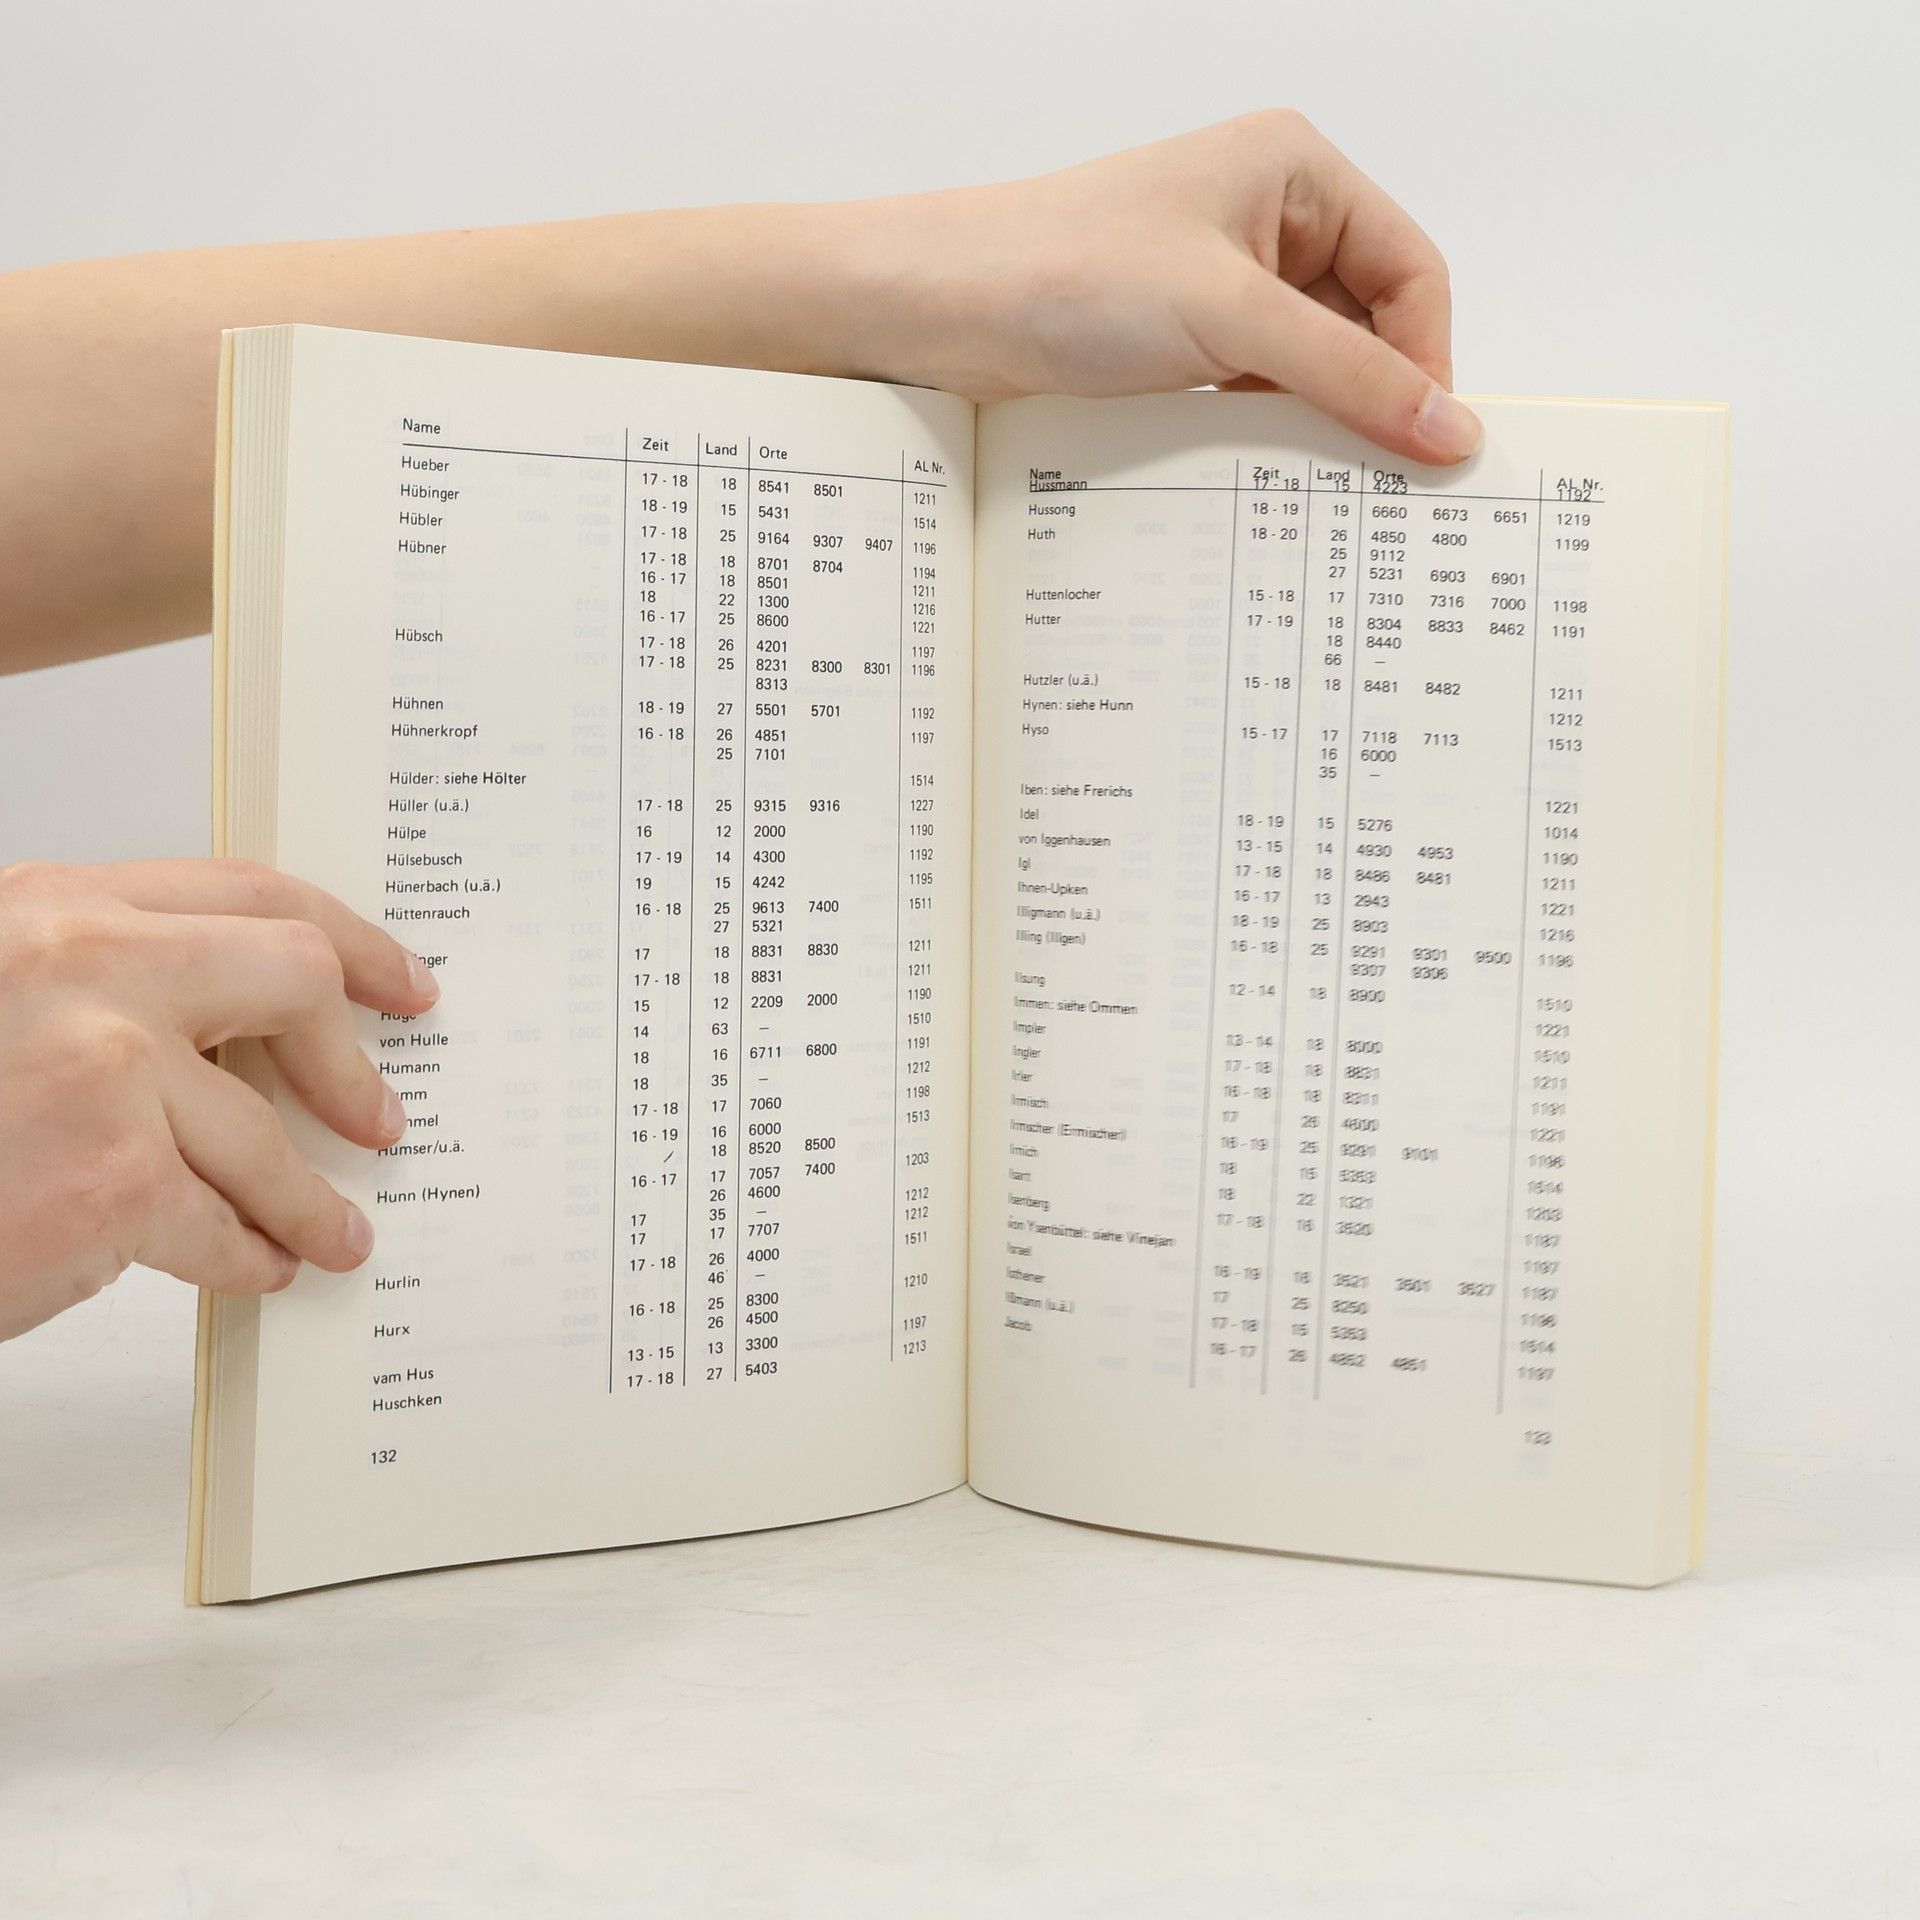 Name Zeit Land Orte AL Nr.
Hueber 17 - 18 18 8541 8501 1211
Hübinger 18 - 19 15 5431 1514
Hübler 17 - 18 25 9164 9307 9407 1196
Hübner 17 - 18 18 8701 8704 1194
16 - 17 18 8501 1211
18 22 1300 1216
16 - 17 25 8600 1221
Hübsch 17 - 18 26 4201 1197
17 - 18 25 8231 8300 8301 1196
8313
Hühnen 18 - 19 27 5501 5701 1192
Hühnerkropf 16 - 18 26 4851 1197
25 7101
Hülder: siehe Hölter 1514
Hüller (u.ä.) 17 - 18 25 9315 9316 1227
Hülpe 16 12 2000 1190
Hülsebusch 17 - 19 14 4300 1192
Hünerbach (u.ä.) 19 15 4242 1195
Hüttenrauch 16 - 18 25 9613 7400 1511
27 5321
17 18 8831 8830 1211
17 - 18 18 8831 1211
Huge 15 12 2209 2000 1190
von Hulle 14 63 – 1510
Humann 18 16 6711 6800 1191
18 35 – 1212
17 - 18 17 7060 1198
Humser/u.ä. 16 - 19 16 6000 1513
/ 18 8520 8500
Hunn (Hynen) 16 - 17 17 7057 7400 1203
26 4600
17 35 – 1212
17 17 7707 1212
Hurlin 17 - 18 26 4000 1511
46 –
Hurx 16 - 18 25 8300 1210
26 4500
vam Hus 13 - 15 13 3300 1197
Huschken 17 - 18 27 5403 1213
132
Name Zeit Land Orte AL Nr.
Hussmann 17 - 18 15 4223 1192
Hussong 18 - 19 19 6660 6673 6651 1219
Huth 18 - 20 26 4850 4800 1199
25 9112
27 5231 6903 6901
Huttenlocher 15 - 18 17 7310 7316 7000 1198
Hutter 17 - 19 18 8304 8833 8462 1191
18 8440
66 –
Hutzler (u.ä.) 15 - 18 18 8481 8482 1211
Hynen: siehe Hunn 1212
Hyso 15 - 17 17 7118 7113 1513
16 6000
35 –
Iben: siehe Frerichs 1221
Idel 18 - 19 15 5276 1014
von Iggenhausen 13 - 15 14 4930 4953 1190
Igl 17 - 18 18 8486 8481 1211
Ihnen-Upken 16 - 17 13 2943 1221
Illigmann (u.ä.) 18 - 19 25 8903 1216
Illing (Illgen) 16 - 18 25 9291 9301 9500 1196
9307 9306
Ilsung 12 - 14 18 8900 1510
Immen: siehe Ommen 1221
Impler 13 - 14 18 8000 1510
Ingler 17 - 18 18 8831 1211
Irler 16 - 18 18 8311 1191
Irmisch 17 26 4600 1221
Irmscher (Ermischer) 16 - 19 25 9291 9101 1196
Irnich 18 15 5353 1514
18 22 1321 1203
Isenberg 17 - 18 16 3520 1187
von Ysenbüttel: siehe Vinejan 1197
Israel 16 - 19 16 3521 3501 3527 1187
17 25 1196
Ißmann (u.ä.) 17 - 18 15 5353 1514
Jacob 16 - 17 26 4852 4851 1197
133